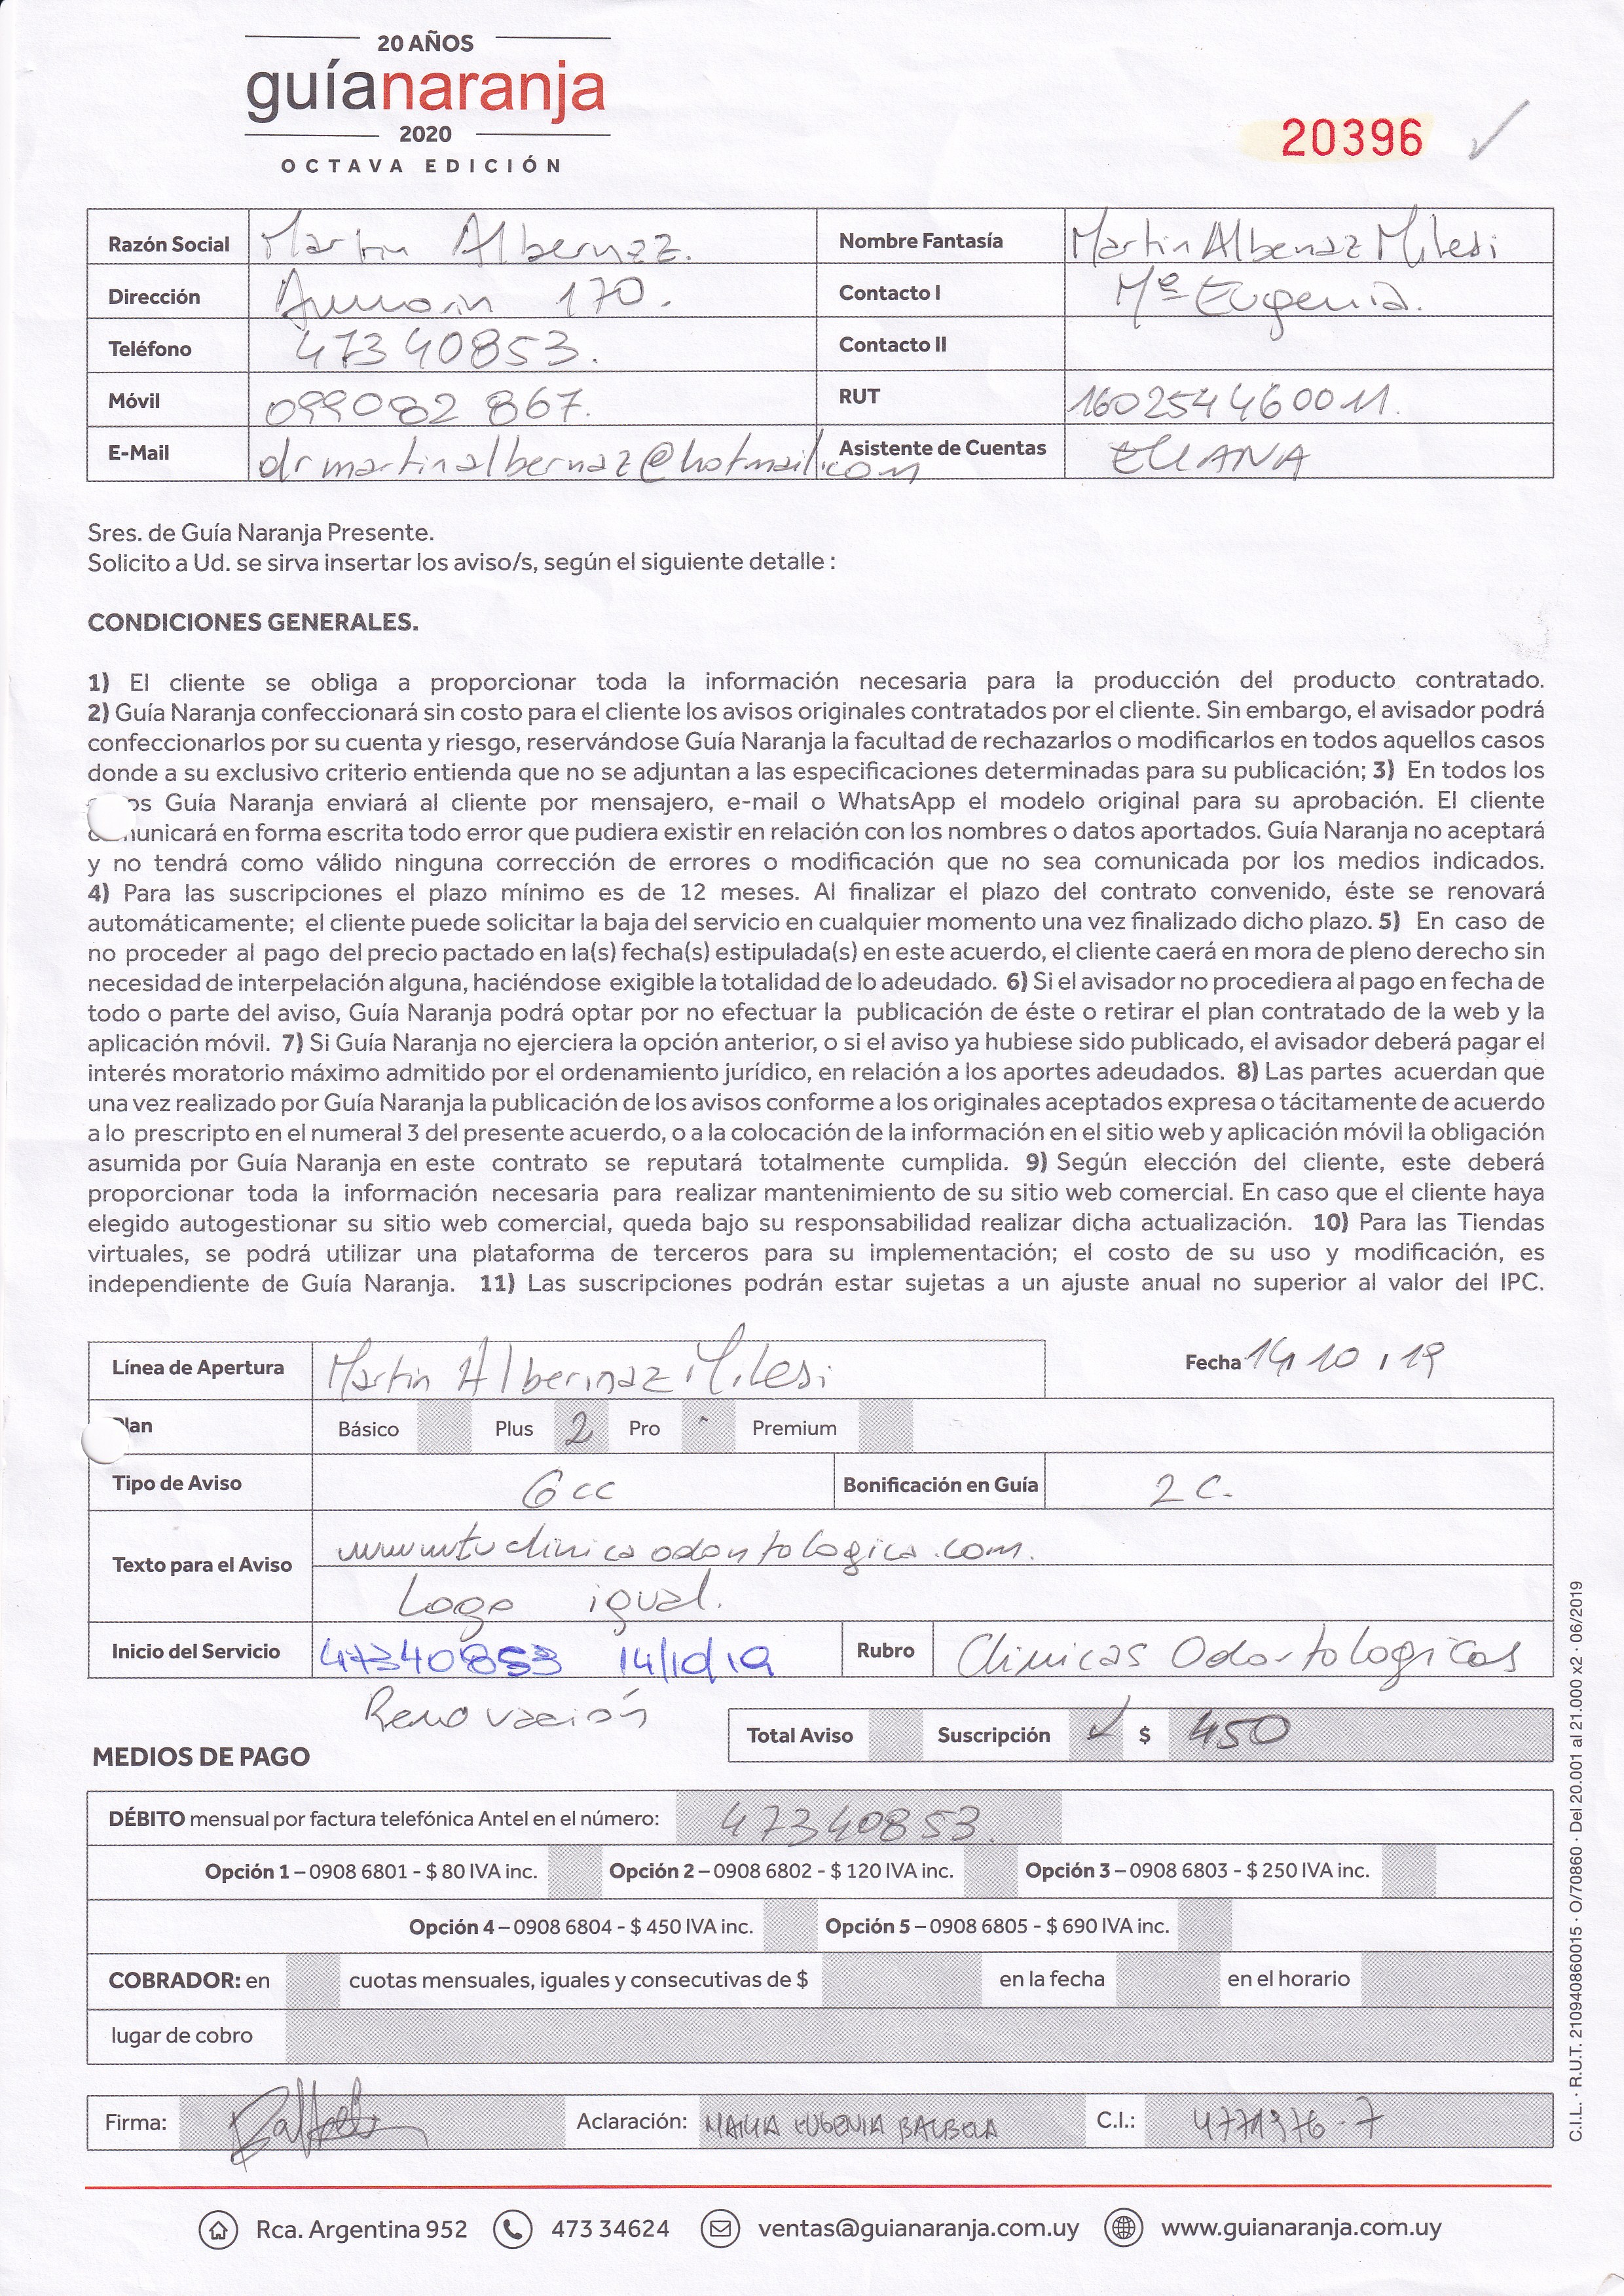 20 AÑOS
guíanaranja
2020
OCTAVA EDICIÓN
20396
Razón Social Martin Albernaz. Nombre Fantasía Martin Albenaz Milesi
Dirección 170. Contacto I Mª Eugenia.
Teléfono 47340853. Contacto II
Móvil 099082 867. RUT 160254460011.
E-Mail drmartinalbernaz@hotmail.com Asistente de Cuentas ELIANA
Sres. de Guía Naranja Presente.
Solicito a Ud. se sirva insertar los aviso/s, según el siguiente detalle :
CONDICIONES GENERALES.
1) El cliente se obliga a proporcionar toda la información necesaria para la producción del producto contratado.
2) Guía Naranja confeccionará sin costo para el cliente los avisos originales contratados por el cliente. Sin embargo, el avisador podrá
confeccionarlos por su cuenta y riesgo, reservándose Guía Naranja la facultad de rechazarlos o modificarlos en todos aquellos casos
donde a su exclusivo criterio entienda que no se adjuntan a las especificaciones determinadas para su publicación; 3) En todos los
os Guía Naranja enviará al cliente por mensajero, e-mail o WhatsApp el modelo original para su aprobación. El cliente
municará en forma escrita todo error que pudiera existir en relación con los nombres o datos aportados. Guía Naranja no aceptará
y no tendrá como válido ninguna corrección de errores o modificación que no sea comunicada por los medios indicados.
4) Para las suscripciones el plazo mínimo es de 12 meses. Al finalizar el plazo del contrato convenido, éste se renovará
automáticamente; el cliente puede solicitar la baja del servicio en cualquier momento una vez finalizado dicho plazo. 5) En caso de
no proceder al pago del precio pactado en la(s) fecha(s) estipulada(s) en este acuerdo, el cliente caerá en mora de pleno derecho sin
necesidad de interpelación alguna, haciéndose exigible la totalidad de lo adeudado. 6) Si el avisador no procediera al pago en fecha de
todo o parte del aviso, Guía Naranja podrá optar por no efectuar la publicación de éste o retirar el plan contratado de la web y la
aplicación móvil. 7) Si Guía Naranja no ejerciera la opción anterior, o si el aviso ya hubiese sido publicado, el avisador deberá pagar el
interés moratorio máximo admitido por el ordenamiento jurídico, en relación a los aportes adeudados. 8) Las partes acuerdan que
una vez realizado por Guía Naranja la publicación de los avisos conforme a los originales aceptados expresa o tácitamente de acuerdo
a lo prescripto en el numeral 3 del presente acuerdo, o a la colocación de la información en el sitio web y aplicación móvil la obligación
asumida por Guía Naranja en este contrato se reputará totalmente cumplida. 9) Según elección del cliente, este deberá
proporcionar toda la información necesaria para realizar mantenimiento de su sitio web comercial. En caso que el cliente haya
elegido autogestionar su sitio web comercial, queda bajo su responsabilidad realizar dicha actualización. 10) Para las Tiendas
virtuales, se podrá utilizar una plataforma de terceros para su implementación; el costo de su uso y modificación, es
independiente de Guía Naranja. 11) Las suscripciones podrán estar sujetas a un ajuste anual no superior al valor del IPC.
Línea de Apertura Martin Alberinaz Milesi Fecha 14/10/19
Plan Básico Plus 2 Pro Premium
Tipo de Aviso 6cc Bonificación en Guía 2C.
Texto para el Aviso www.tuclinicaodontologica.com.
Logo igual.
Inicio del Servicio 47340853 14/10/19 Rubro Clinicas Odontologicas
Renovación
Total Aviso Suscripción ✓ $ 450
MEDIOS DE PAGO
DÉBITO mensual por factura telefónica Antel en el número: 47340853.
Opción 1 – 0908 6801 - $ 80 IVA inc. Opción 2 – 0908 6802 - $ 120 IVA inc. Opción 3 – 0908 6803 - $ 250 IVA inc.
Opción 4 – 0908 6804 - $ 450 IVA inc. Opción 5 – 0908 6805 - $ 690 IVA inc.
COBRADOR: en cuotas mensuales, iguales y consecutivas de $ en la fecha en el horario
lugar de cobro
Firma: Aclaración: MARIA EUGENIA BALBELA C.I.: 4771376-7
Rca. Argentina 952 473 34624 ventas@guianaranja.com.uy www.guianaranja.com.uy
C.I.L. · R.U.T. 210940860015 · O/70860 · Del 20.001 al 21.000 x2 · 06/2019